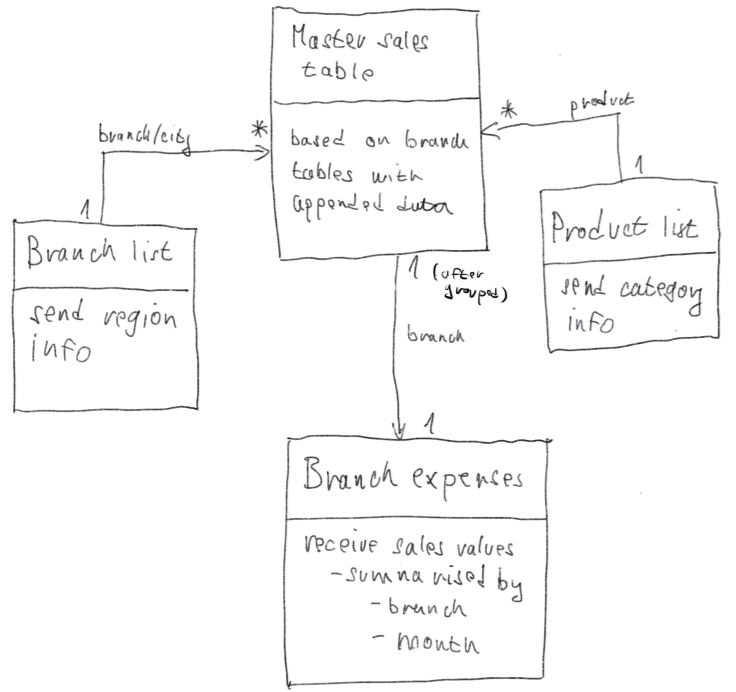 Master sales
table
based on branch
tables with
appended data
branch/city
*
1
Branch list
send region
info
product
*
1
Product list
send category
info
1 (after
grouped)
branch
1
Branch expenses
receive sales values
-summarised by
-branch
- month